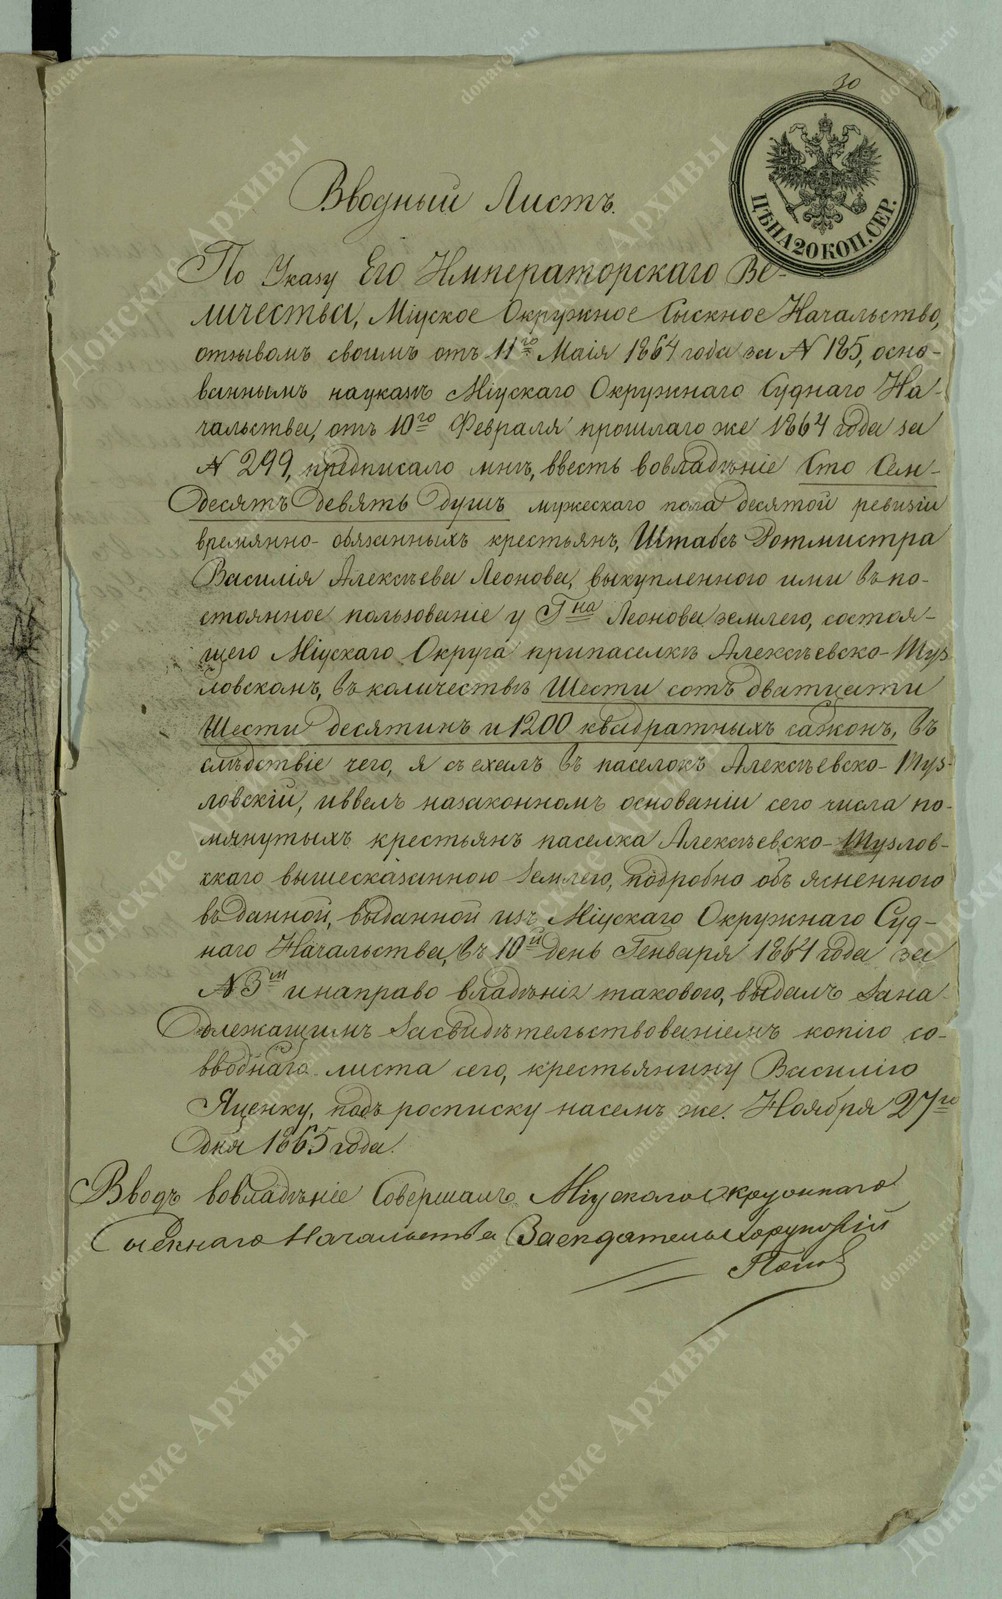 30
ЦѢНА 20 КОП. СЕР.
Вводный Листъ.
По Указу Его Императорскаго Ве-
личества, Міуское Окружное Сыскное Начальство,
отзывомъ своимъ отъ 11го Маія 1864 года за № 185, осно-
ваннымъ науказѣ Міускаго Окружнаго Суднаго На-
чальства, отъ 10го Февраля прошлаго же 1864 года за
№ 299, предписало мнѣ, ввесть вовладѣніе Сто Сем-
десятъ девять душъ мужескаго пола десятой ревизіи
времянно-обязанныхъ крестьянъ, Штабсъ Ротмистра
Василія Алексѣева Леонова, выкупленного ими въ по-
стоянное пользованіе у Гна Леонова землею, состоя-
щею Міускаго Округа припаселкѣ Алексѣевско-Туз
ловскомъ, въ количествѣ Шести сотъ дватцати
Шести десятинъ и 1200 квадратныхъ сажонъ, въ
слѣдствіе чего, я съехалъ въ паселокъ Алексѣевско-Туз-
ловскій, иввелъ назаконномъ основаніи сего числа по-
мянутыхъ крестьянъ паселка Алексѣевско-Тузлов-
скаго вышесказанною землею, подробно объясненного
въ данной, выданной изъ Міускаго Окружнаго Суд-
наго Начальства, въ 10й день Генваря 1864 года за
№ 3м инаправо владѣнія такового, выдалъ зана
длежащимъ засвидѣтельствованіемъ копію со-
вводнаго листа сего, крестьянину Василію
Яценку, подъ росписку насемъ же. Ноября 27го
дня 1865 года.
Вводъ вовладѣніе Совершалъ Міускаго окружнаго
Сыскнаго Начальства Заседатель Хорунжій
Попов
Донские Архивы
donarch.ru